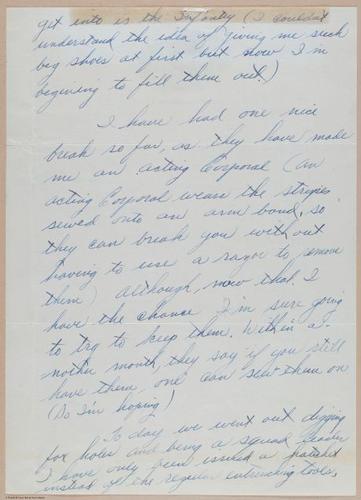 get into is the Infantry (I couldn't
understand the idea of giving me such
big shoes at first but now I'm
begining to fill them out.)
I have had one nice
break so far, as they have made
me an acting Corporal (an
acting Corporal wears the stripes
sewed onto an arm band, so
they can break you without
having to use a razor to remove
them) Although, now that I
have the chance I'm sure going
to try to keep them. Within a-
nother month, they say if you still
have them, one can sew them on
(So I'm hoping)
To day we went out digging
fox holes and being a squad leader
I have only been issued a hatchet
instead of the regular entrenching tools,